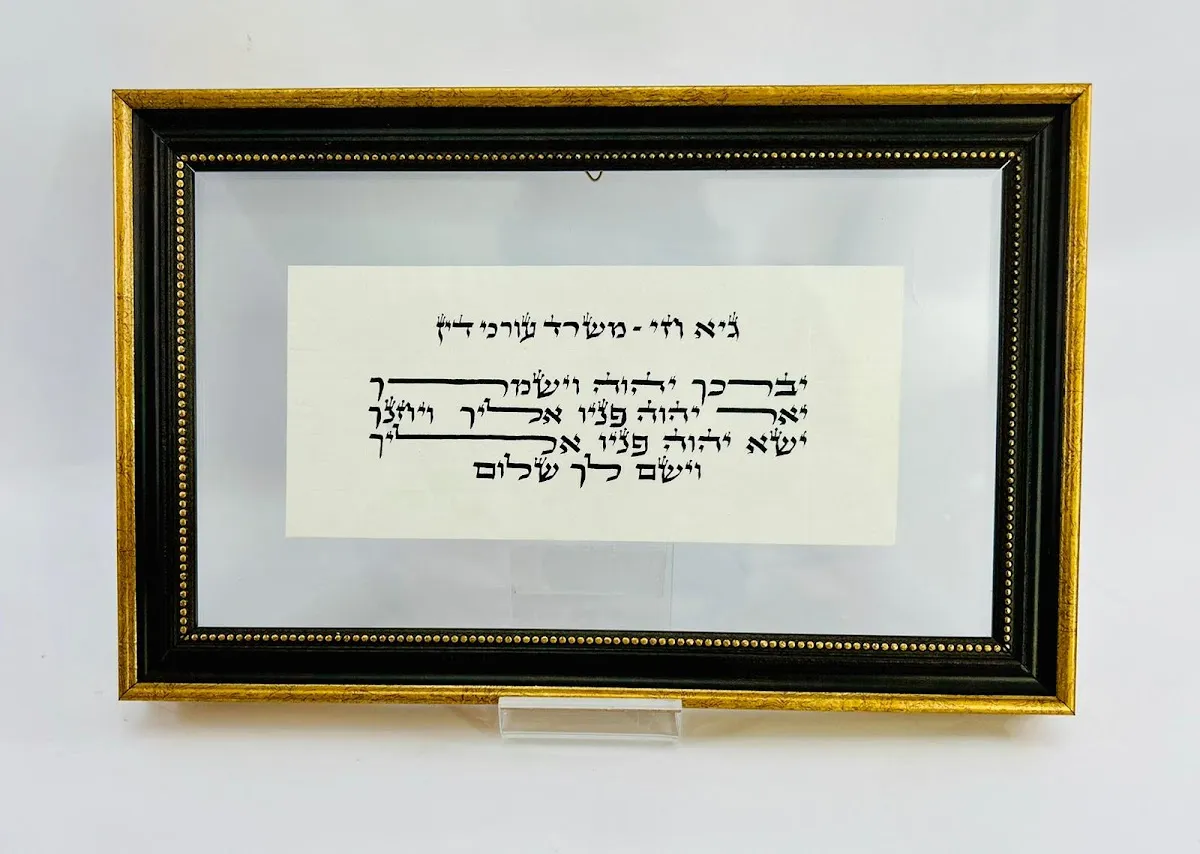 גיא וזי - משרד עורכי דין
יברכך יהוה וישמרך
יאר יהוה פניו אליך ויחנך
ישא יהוה פניו אליך
וישם לך שלום